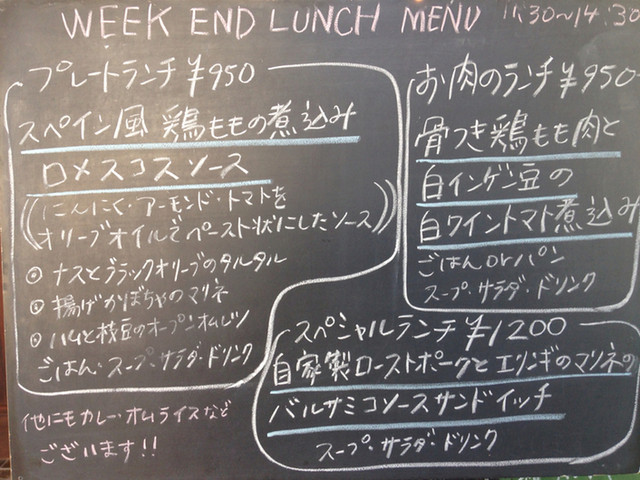 WEEK END LUNCH MENU 11:30〜14:30
プレートランチ ¥950
スペイン風 鶏ももの煮込み
ロメスコスソース
((にんにく・アーモンド・トマトを
オリーブオイルでペースト状にしたソース))
◎ ナスとブラックオリーブのタルタル
◎ 揚げかぼちゃのマリネ
◎ ハムと枝豆のオープンオムレツ
ごはん・スープ・サラダ・ドリンク
他にもカレー・オムライスなど
ございます!!
お肉のランチ ¥950
骨つき鶏もも肉と
白インゲン豆の
白ワイントマト煮込み
ごはん or パン
スープ・サラダ・ドリンク
スペシャルランチ ¥1200
自家製ローストポークとエリンギのマリネの
バルサミコソースサンドイッチ
スープ・サラダ・ドリンク